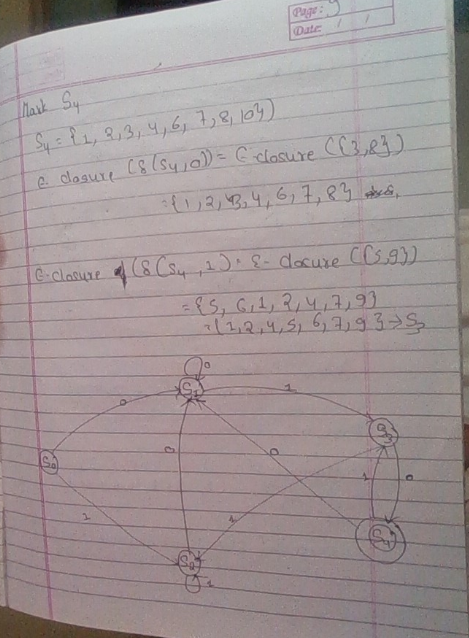 Page: 9
Date: / /
Mark S4
S4 = {1, 2, 3, 4, 6, 7, 8, 10})
ε-closure (δ(S4, 0)) = ε-closure ({3,8})
= {1, 2, 3, 4, 6, 7, 8}
ε-closure (δ(S4, 1) = ε-closure ({5,9})
= {5, 6, 1, 2, 4, 7, 9}
= {1, 2, 4, 5, 6, 7, 9} → S3
0
S1
1
0
S3
S0
0
0
1
0
1
1
S4
S2
1